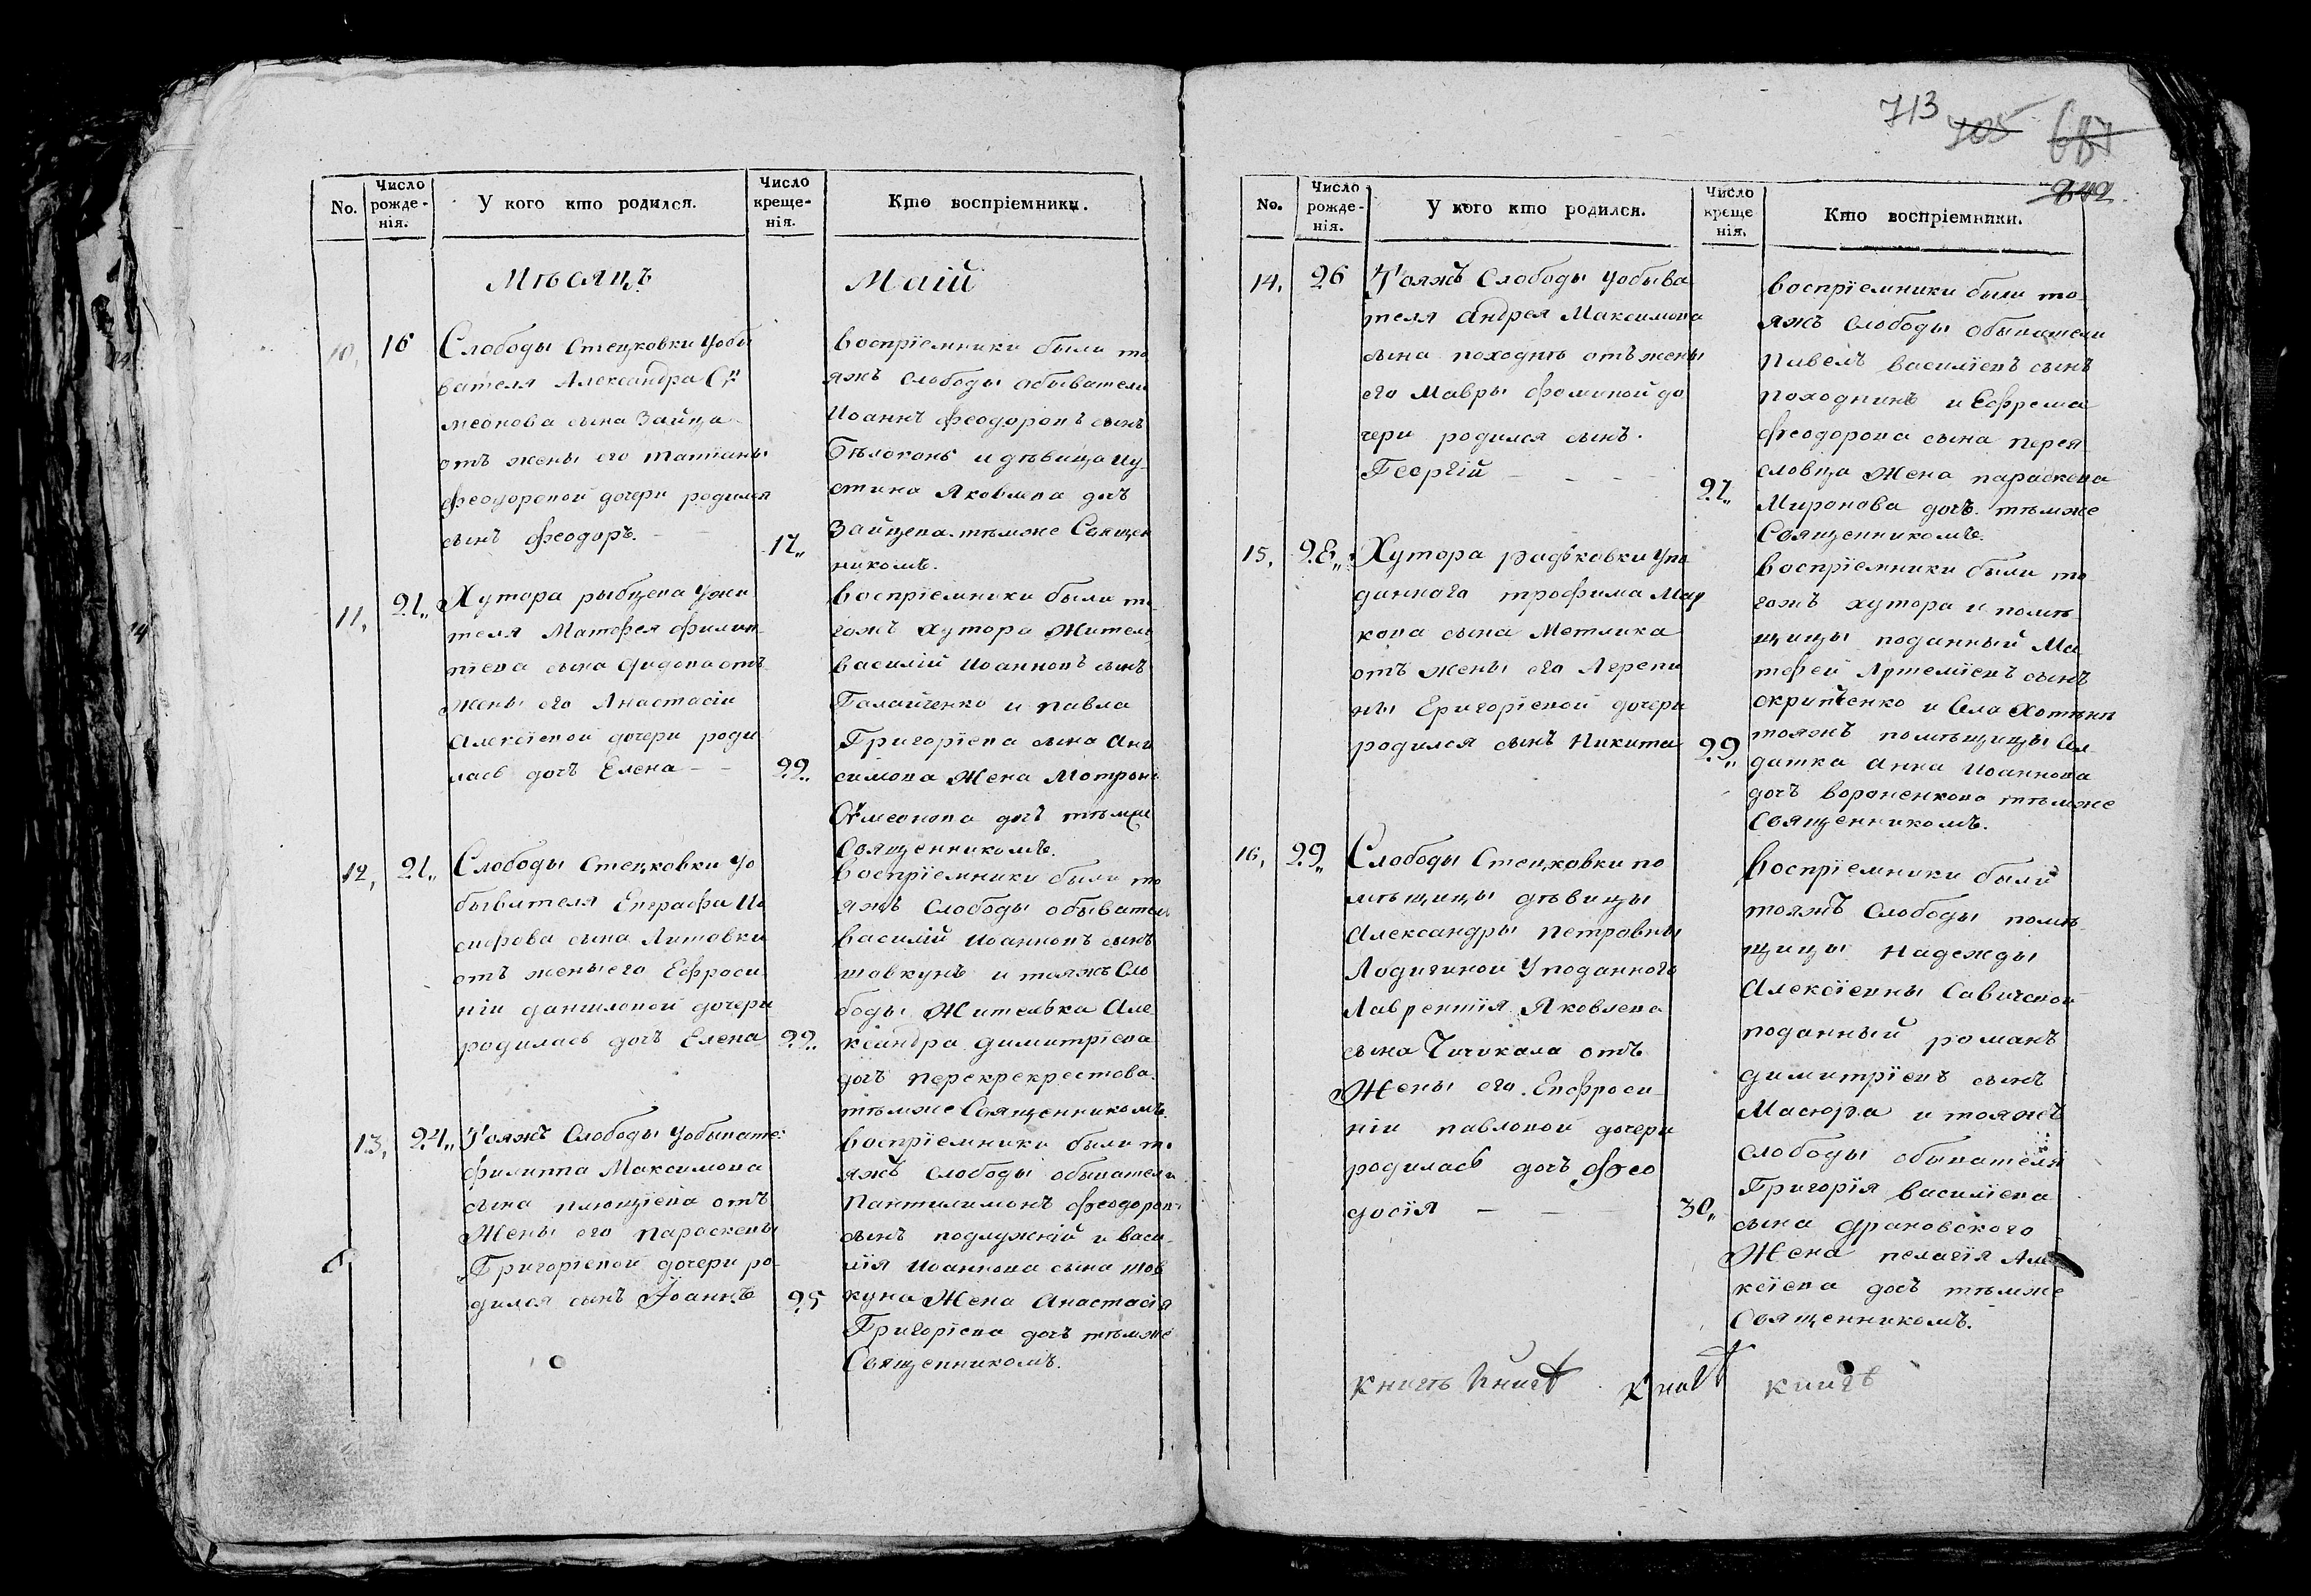 No.
Число рожде- нія.
У кого кто родился.
Число креще- нія.
Кто воспріемники.
Мѣсяцъ Маій
10, 16
Слободы Стецковки Уобы
вателя Александра Си
меонова сына Зайца
отъ жены его Татіаны
Феодоровой дочери родился
сынъ Феодоръ. —
17„
воспріемники были то
яжъ слободы обыватели
Иоаннъ Феодоровъ сынъ
Бѣлоконь и дѣвица Иу-
стина Яковлева дочъ
Зайцева. тѣмже Священ
никомъ.
11, 21„
Хутора рыбцева Ужи
теля Матфея филип-
піева сына Дидова отъ
жены его Анастасіи
Алексіевой дочери роди
лась дочъ Елена — —
22„
воспріемники были то
гожъ хутора Житель
василій Иоанновъ сынъ
Галайченко и павла
Григоріева сына Ани
симова Жена Мотрона
Сѵмеонова дочъ тѣмже
Священникомъ.
12, 21„
Слободы Стецковки Уо
бывателя Евграфа Ио
сифова сына Литовки
отъ жены его Ефроси
ніи даниловой дочери
родилась дочъ Елена
22„
воспріемники были то
яжъ слободы обыватель
василій Иоанновъ сынъ
шовкунъ и тояжъ Сло
боды Жителька Але
ксандра димитріева
дочъ перекрекрестова.
тѣмже Священникомъ.
13, 24„
Тояжъ Слободы Уобывате:
филиппа Максимова
сына плющіева отъ
Жены его параскевы
Григоріевой дочери ро-
дился сынъ Іоаннъ
25
воспріемники были то
яжъ слободы обыватели
пантилимонъ Феодоров:
сынъ подлужній и васи-
лія Иоаннова сына шов
куна Жена Анастасія
Григоріева дочъ тѣмже
Священникомъ.
713 705 687
842
No.
Число рожде- нія.
У кого кто родился.
Число креще нія.
Кто воспріемники.
14, 26
Тояжъ Слободы Уобыва
теля андрея Максимова
сына походня отъ жены
его Мавры фоминой до
чери родился сынъ.
Георгій — — — —
27„
воспріемники были то-
яжъ слободы обыватели
павелъ василіевъ сынъ
походнинъ и Ефрема
феодорова сына перея
словца Жена параскева
Миронова дочъ. тѣмже
Священникомъ.
15, 28„
Хутора радьковки Упо
даннаго трофима Мар
кова сына Метлика
отъ жены его Агрепи
ны Григоріевой дочери
родился сынъ Никита
29„
воспріемники были то
гожъ хутора и помѣ
щицы поданный Ма
тфей Артеміевъ сынъ
скрипченко и села Хотѣни
тояжъ помѣщицы Сол
датка Анна Иоаннова
дочъ вороненкова тѣмже
Священникомъ.
16, 29„
Слободы Стецковки по
мѣщицы дѣвицы
Александры Петровны
Лодигиной Уподанного
Лаврентія Яковлева
сына Чичикала отъ
Жены его Евфроси-
ніи павловой дочери
родилась дочъ Фео
досія — —
30„
воспріемники были
тояжъ Слободы помѣ
щицы Надежды
Алексіевны Савичевой
поданный романъ
димитріевъ сынъ
Масюра и тояжъ
слободы обывателя
Григорія василіева
сына драновского
Жена пелагія Але
ксіева дочъ тѣмже
Священникомъ.